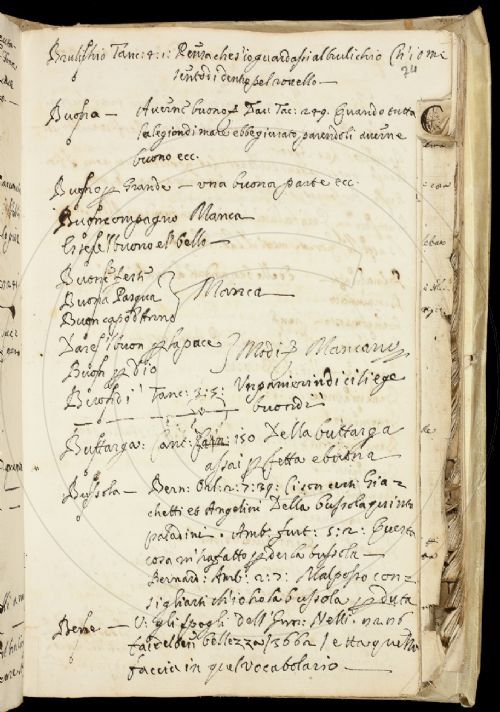 Brulichio Tanc: 4: 1: Pensa ches'io guardassi al brulichio Ch'io mi
24
sentodi dentro pel rovello —
Buona — Averne buono Dav: Tac: 249. Quando tutta
la legion di mare ebbe giurato parendoli averne
buono ecc.
Buono p Grande — una buona parte ecc.
Buoncompagno Manca
Essere'l buono e'l bello —
Buone Feste
Buona Pasqua } Manca —
Buon capo d'Anno
Dare'l buon p la pace } Modi Mancanti
Buon p Dio
Buondì Tanc: 3: 5: Un panierin di ciliege
buondì
Buttarga: Cant: 150 Della buttarga
assai p fetta e buona
Bussola — Bern: Orl: 2: 7: 39: Ci son cinti Gia=
chetti et Angelini Della bussola quinto
paladini. Amb: Furt: 5: 2: Questa
cosa m'ha fatto p der la bussola —
Bernard: Amb: 2: 7: Mal posso con=
sigliarti ch'i ho la bussola p duta
Bene — V: gli spogli dell'
bellezza 1366
faccia in quel vocabolario —